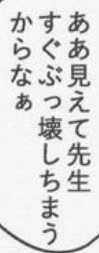 ああ見えて先生
すぐぶっ壊しちまう
からなぁ